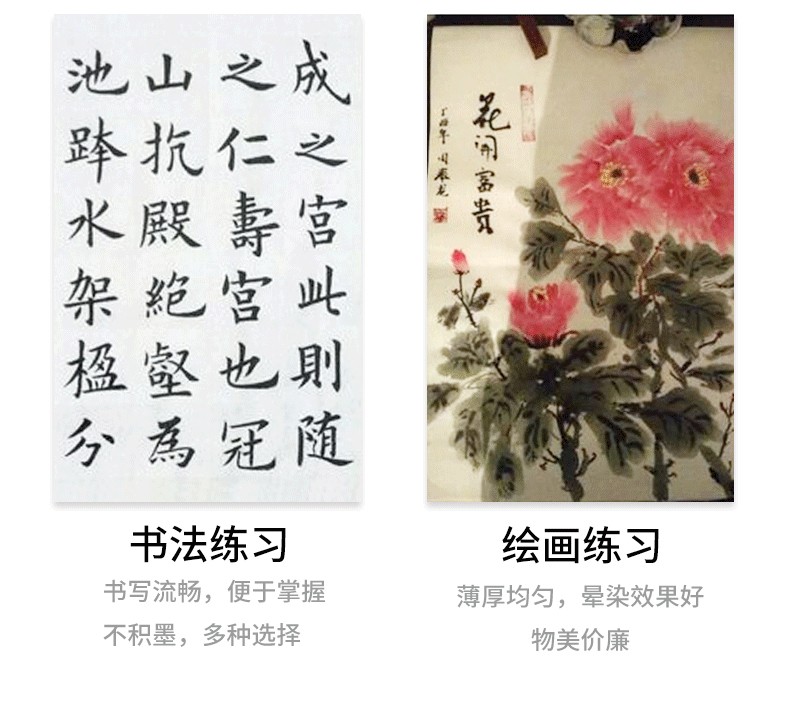 成之宫此則随
之仁壽宫也冠
山抗殿絕壑為
池跨水架楹分
花開富貴
丁酉年
书法练习
书写流畅，便于掌握
不积墨，多种选择
绘画练习
薄厚均匀，晕染效果好
物美价廉